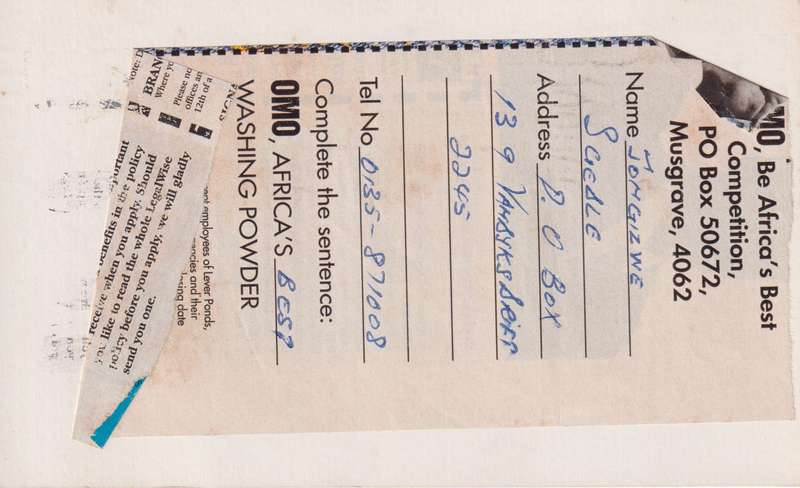 MO, Be Africa's Best
Competition,
PO Box 50672,
Musgrave, 4062
Name JONGIZWE
Address P. O BOX
13 9 VANDYKSDRIFT
2245
Tel No 0135-871008
Complete the sentence:
OMO, AFRICA'S BEST
WASHING POWDER
BRAN
Where yo
Please no
offices an
12th of a
SIGNA
employees of Lever Ponds,
ancies and their
date
portant
benefits in the policy
receive when you apply. Should
like to read the whole LegalWise
policy before you apply, we will gladly
send you one.